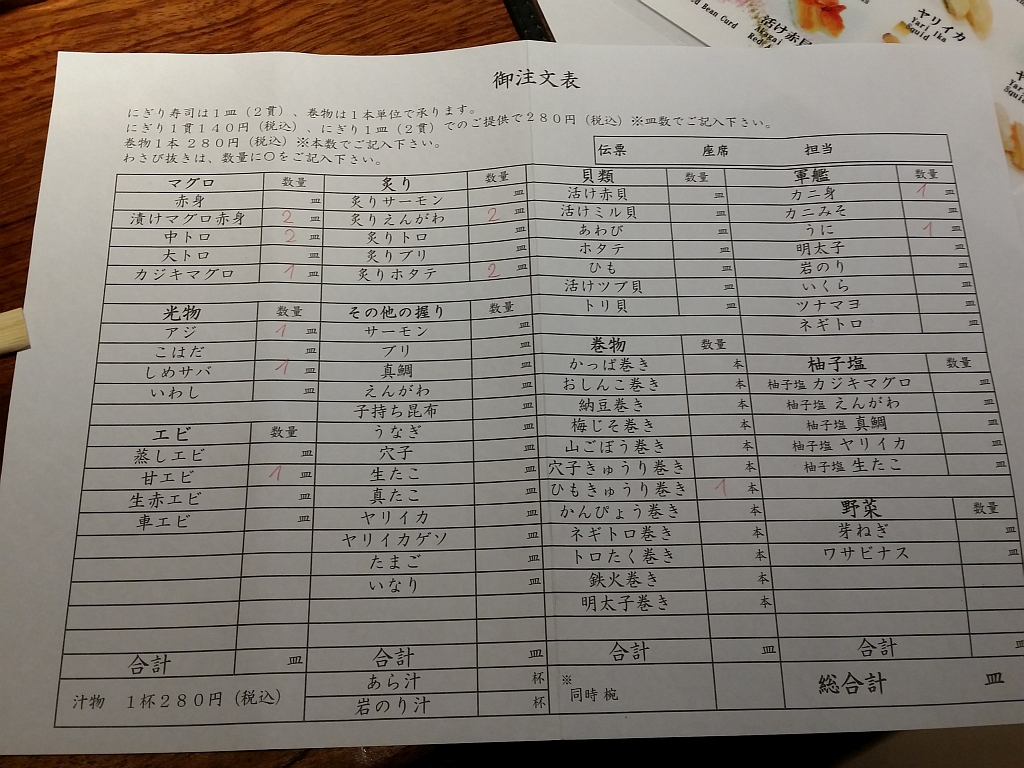 Bean Curd
活け赤貝
Akagai
ヤリイカ
Yari Ika
Squid
御注文表
にぎり寿司は1皿(2貫)、巻物は1本単位で承ります。
にぎり1貫140円(税込)、にぎり1皿(2貫)でのご提供で280円(税込)※皿数でご記入下さい。
巻物1本 280円(税込)※本数でご記入下さい。
わさび抜きは、数量に○をご記入下さい。
伝票 座席 担当
マグロ 数量
赤身 皿
漬けマグロ赤身 2 皿
中トロ 2 皿
大トロ 皿
カジキマグロ 1 皿
光物 数量
アジ 1 皿
こはだ 皿
しめサバ 1 皿
いわし 皿
エビ 数量
蒸しエビ 皿
甘エビ 1 皿
生赤エビ 皿
車エビ 皿
合計 皿
炙り 数量
炙りサーモン 皿
炙りえんがわ 2 皿
炙りトロ 皿
炙りブリ 皿
炙りホタテ 2 皿
その他の握り 数量
サーモン 皿
ブリ 皿
真鯛 皿
えんがわ 皿
子持ち昆布 皿
うなぎ 皿
穴子 皿
生たこ 皿
真たこ 皿
ヤリイカ 皿
ヤリイカゲソ 皿
たまご 皿
いなり 皿
合計 皿
貝類 数量
活け赤貝 皿
活けミル貝 皿
あわび 皿
ホタテ 皿
ひも 皿
活けツブ貝 皿
トリ貝 皿
巻物 数量
かっぱ巻き 本
おしんこ巻き 本
納豆巻き 本
梅じそ巻き 本
山ごぼう巻き 本
穴子きゅうり巻き 本
ひもきゅうり巻き 1 本
かんぴょう巻き 本
ネギトロ巻き 本
トロたく巻き 本
鉄火巻き 本
明太子巻き 本
合計 皿
軍艦 数量
カニ身 1 皿
カニみそ 皿
うに 1 皿
明太子 皿
岩のり 皿
いくら 皿
ツナマヨ 皿
ネギトロ 皿
柚子塩 数量
柚子塩 カジキマグロ 皿
柚子塩 えんがわ 皿
柚子塩 真鯛 皿
柚子塩 ヤリイカ 皿
柚子塩 生たこ 皿
野菜 数量
芽ねぎ 皿
ワサビナス 皿
合計 皿
汁物 1杯280円(税込)
あら汁 杯
岩のり汁 杯
※
同時 椀
総合計 皿